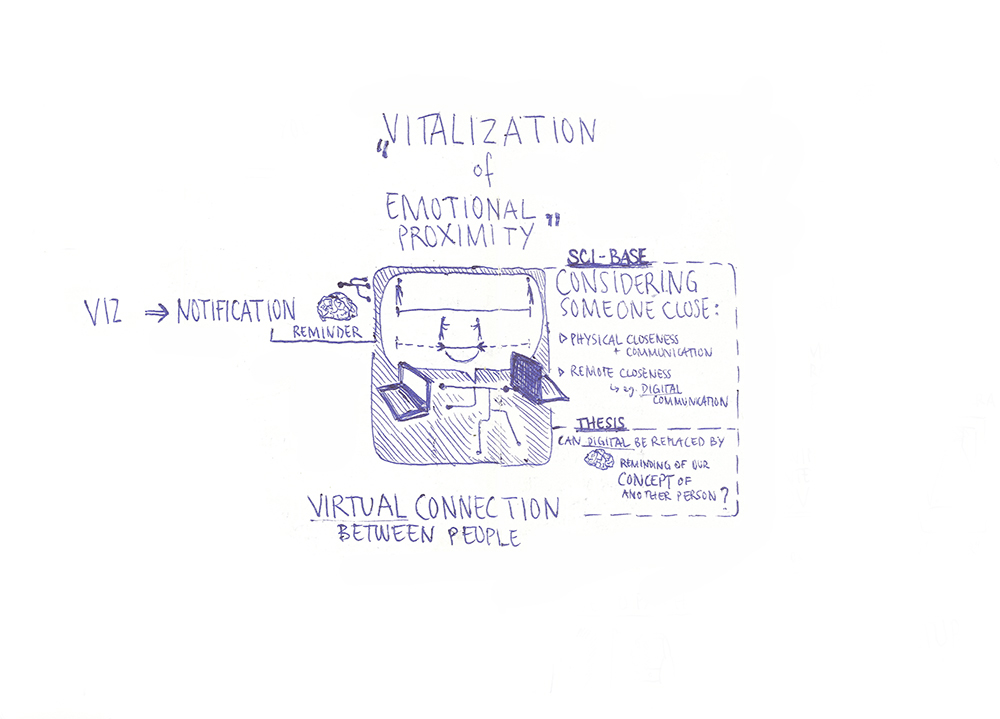 „VITALIZATION
of
EMOTIONAL
PROXIMITY"
VIZ ⇒ NOTIFICATION
REMINDER
SCI-BASE
CONSIDERING
SOMEONE CLOSE:
▷ PHYSICAL CLOSENESS
+ COMMUNICATION
▷ REMOTE CLOSENESS
↳ eg. DIGITAL
COMMUNICATION
THESIS
CAN DIGITAL BE REPLACED BY
REMINDING OF OUR
CONCEPT OF
ANOTHER PERSON?
VIRTUAL CONNECTION
BETWEEN PEOPLE